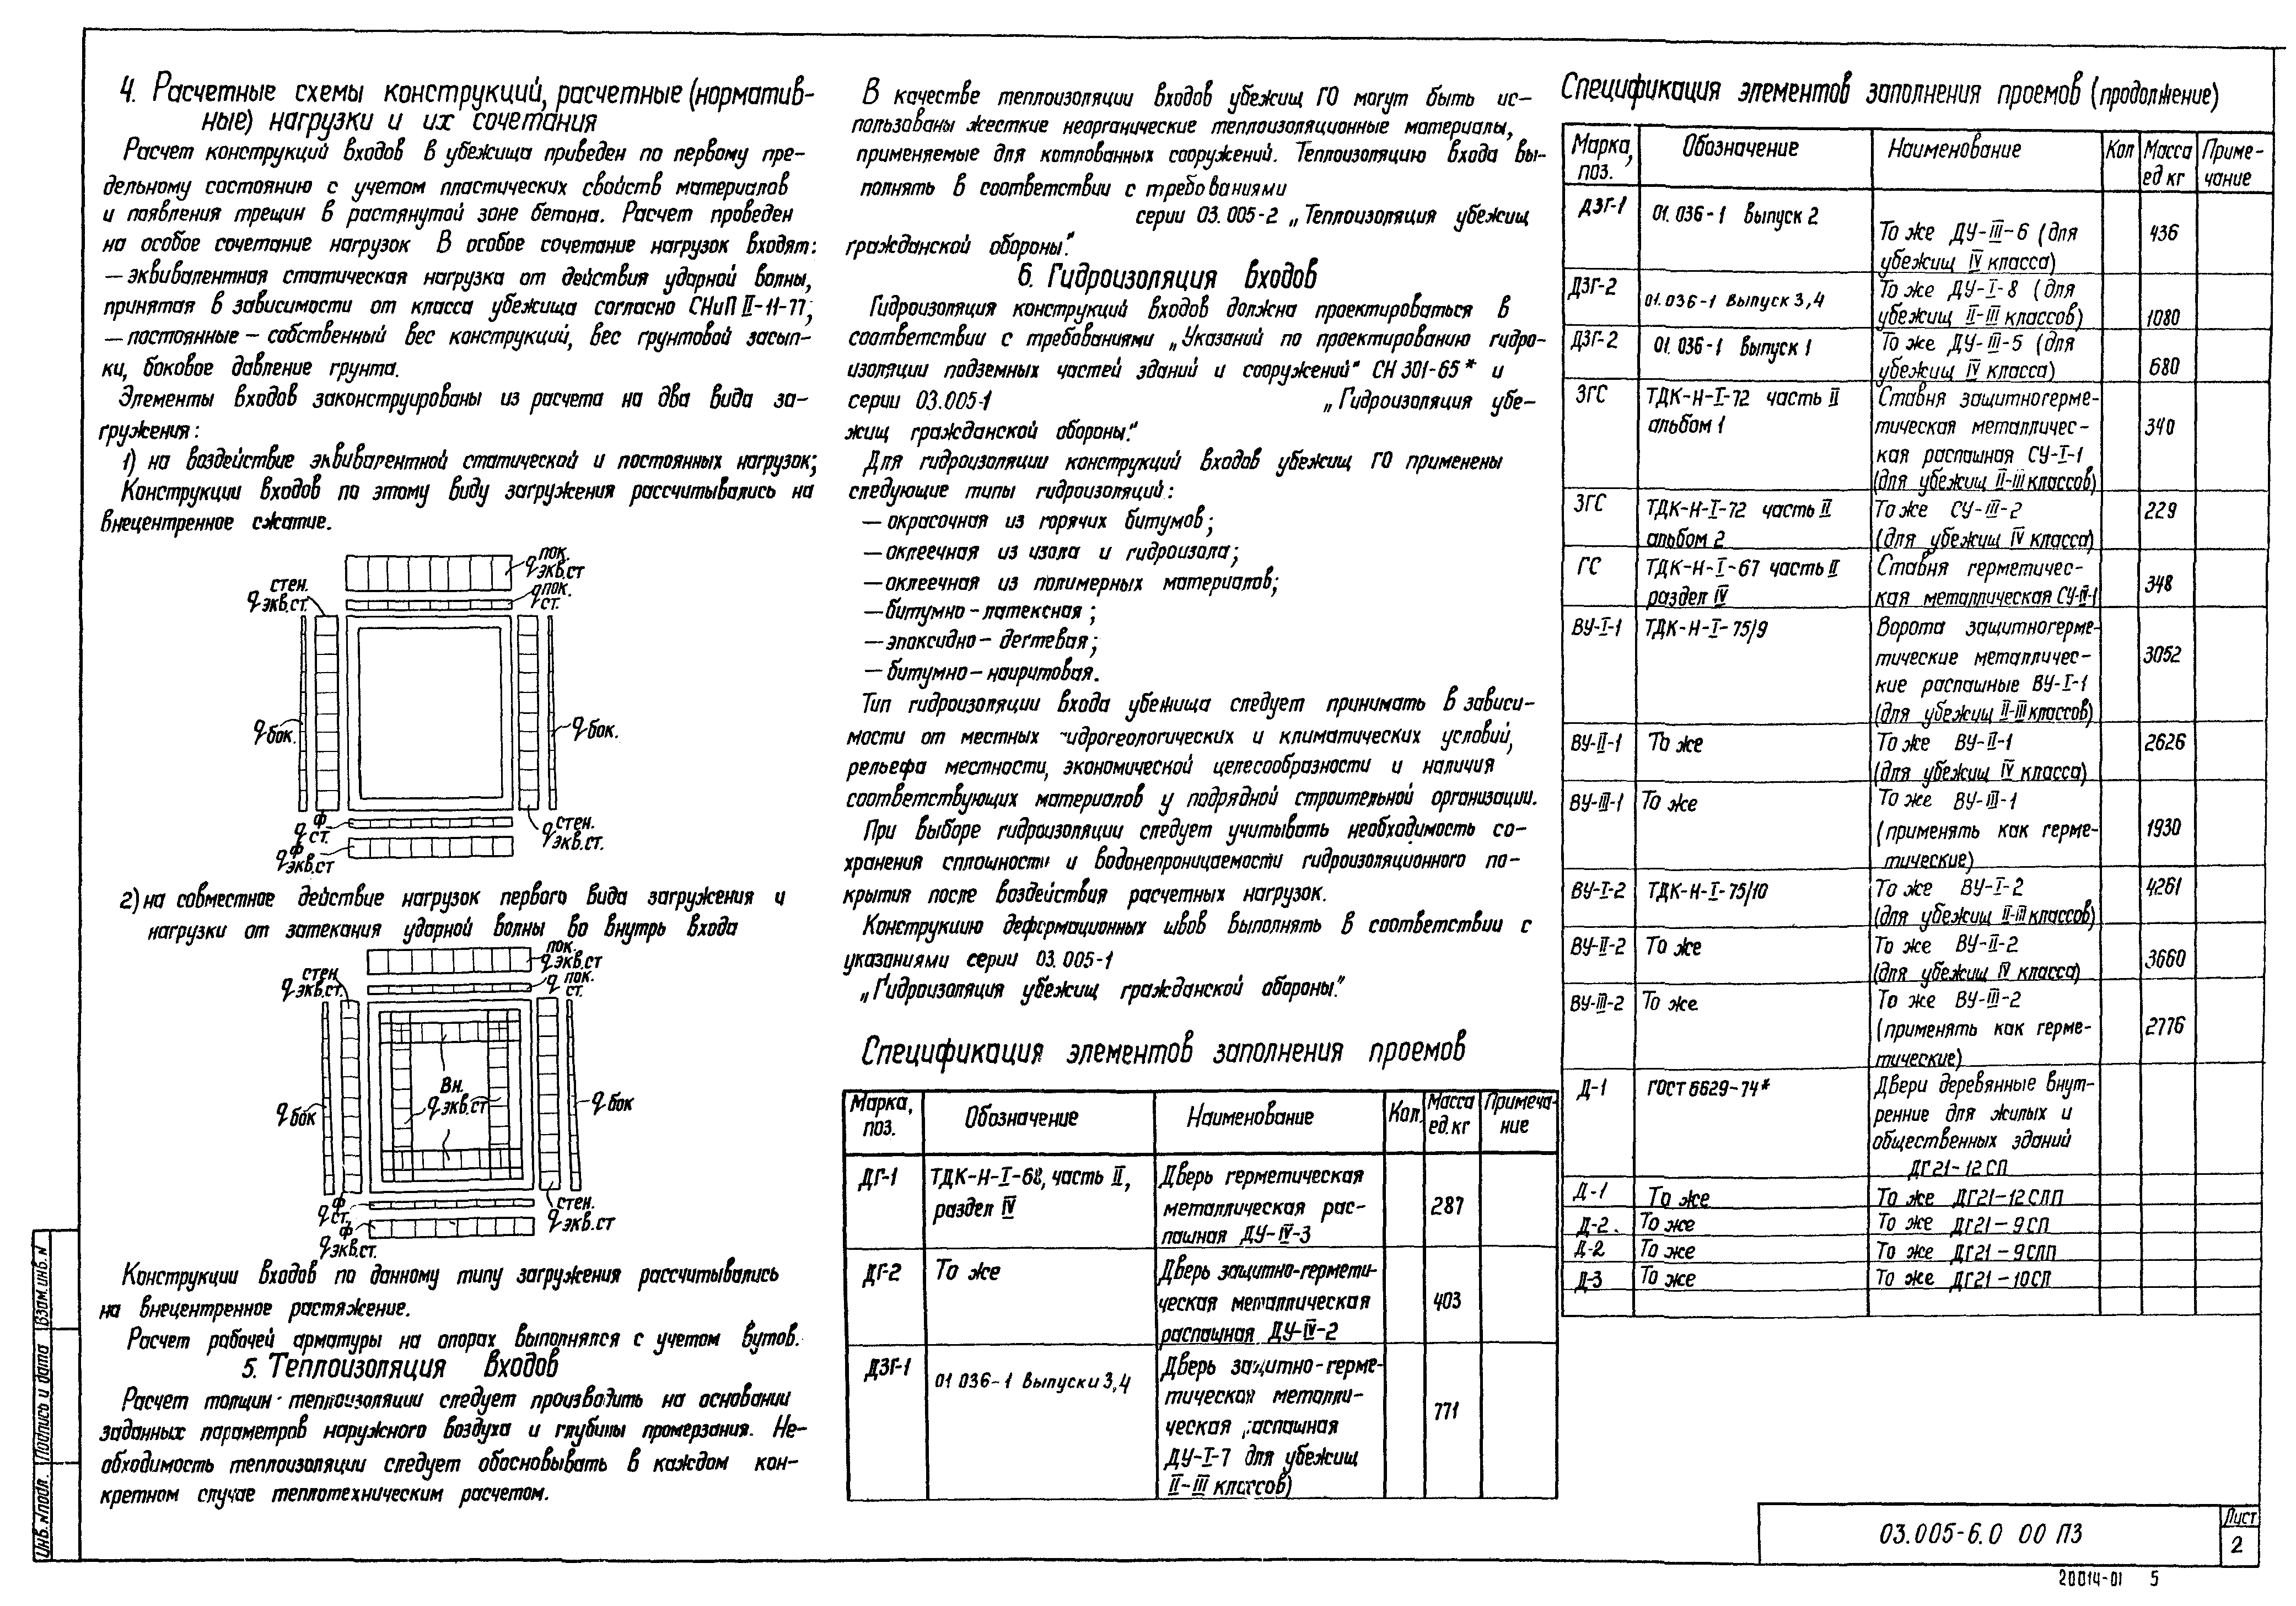 4. Расчетные схемы конструкций, расчетные (норматив-
ные) нагрузки и их сочетания
Расчет конструкций входов в убежища приведен по первому пре-
дельному состоянию с учетом пластических свойств материалов
и появления трещин в растянутой зоне бетона. Расчет проведен
на особое сочетание нагрузок В особое сочетание нагрузок входят:
— эквивалентная статическая нагрузка от действия ударной волны,
принятая в зависимости от класса убежища согласно СНиП II-11-77;
— постоянные — собственный вес конструкций, вес грунтовой засып-
ки, боковое давление грунта.
Элементы входов законструированы из расчета на два вида за-
гружения:
1) на воздействие эквивалентной статической и постоянных нагрузок;
Конструкции входов по этому виду загружения рассчитывались на
внецентренное сжатие.
q пок. экв.ст
q пок. ст.
q стен. экв.ст.
q бок.
q бок.
q ф ст.
q ф экв.ст
q стен. экв.ст.
2) на совместное действие нагрузок первого вида загружения и
нагрузки от затекания ударной волны во внутрь входа
q пок. экв.ст
q пок. ст.
q стен. экв.ст.
Вн.
q экв.ст
q бок
q бок
q ф ст.
q ф экв.ст.
q стен. экв.ст
Конструкции входов по данному типу загружения рассчитывались
на внецентренное растяжение.
Расчет рабочей арматуры на опорах выполнялся с учетом вутов.
5. Теплоизоляция входов
Расчет толщин теплоизоляции следует производить на основании
заданных параметров наружного воздуха и глубины промерзания. Не-
обходимость теплоизоляции следует обосновывать в каждом кон-
кретном случае теплотехническим расчетом.
В качестве теплоизоляции входов убежищ ГО могут быть ис-
пользованы жесткие неорганические теплоизоляционные материалы,
применяемые для котлованных сооружений. Теплоизоляцию входа вы-
полнять в соответствии с требованиями
серии 03.005-2 „Теплоизоляция убежищ
гражданской обороны."
6. Гидроизоляция входов
Гидроизоляция конструкций входов должна проектироваться в
соответствии с требованиями „Указаний по проектированию гидро-
изоляции подземных частей зданий и сооружений" СН 301-65* и
серии 03.005-1 „Гидроизоляция убе-
жищ гражданской обороны."
Для гидроизоляции конструкций входов убежищ ГО применены
следующие типы гидроизоляций:
— окрасочная из горячих битумов;
— оклеечная из изола и гидроизола;
— оклеечная из полимерных материалов;
— битумно-латексная;
— эпоксидно-дегтевая;
— битумно-наиритовая.
Тип гидроизоляции входа убежища следует принимать в зависи-
мости от местных гидрогеологических и климатических условий,
рельефа местности, экономической целесообразности и наличия
соответствующих материалов у подрядной строительной организации.
При выборе гидроизоляции следует учитывать необходимость со-
хранения сплошности и водонепроницаемости гидроизоляционного по-
крытия после воздействия расчетных нагрузок.
Конструкцию деформационных швов выполнять в соответствии с
указаниями серии 03.005-1
„Гидроизоляция убежищ гражданской обороны."
Спецификация элементов заполнения проемов
Марка, поз. Обозначение Наименование Кол. Масса ед.кг Примеча-
ние
ДГ-1 ТДК-Н-I-68, часть II, Дверь герметическая
раздел IV металлическая рас- 287
пашная ДУ-IV-3
ДГ-2 То же Дверь защитно-гермети-
ческая металлическая 403
распашная ДУ-IV-2
ДЗГ-1 01 036-1 Выпуски 3,4 Дверь защитно-герме-
тическая металли-
ческая распашная 771
ДУ-I-7 для убежищ
II-III классов)
Спецификация элементов заполнения проемов (продолжение)
Марка, поз. Обозначение Наименование Кол Масса ед кг Приме-
чание
ДЗГ-1 01.036-1 Выпуск 2 То же ДУ-III-6 (для 436
убежищ IV класса)
ДЗГ-2 01.036-1 Выпуск 3,4 То же ДУ-I-8 (для
убежищ II-III классов) 1080
ДЗГ-2 01.036-1 Выпуск 1 То же ДУ-III-5 (для
убежищ IV класса) 680
ЗГС ТДК-Н-I-72 часть II Ставня защитногерме-
альбом 1 тическая металличес- 340
кая распашная СУ-I-1
(для убежищ II-III классов)
ЗГС ТДК-Н-I-72 часть II То же СУ-III-2 229
альбом 2 (для убежищ IV класса)
ГС ТДК-Н-I-67 часть II Ставня герметичес-
раздел IV кая металлическая СУ-IV-1 348
ВУ-I-1 ТДК-Н-I-75/9 Ворота защитногерме-
тические металличес- 3052
кие распашные ВУ-I-1
(для убежищ II-III классов)
ВУ-II-1 То же То же ВУ-II-1 2626
(для убежищ IV класса)
ВУ-III-1 То же То же ВУ-III-1
(применять как герме- 1930
тические)
ВУ-I-2 ТДК-Н-I-75/10 То же ВУ-I-2 4261
(для убежищ II-III классов)
ВУ-II-2 То же То же ВУ-II-2
(для убежищ IV класса) 3660
ВУ-III-2 То же То же ВУ-III-2
(применять как герме- 2776
тические)
Д-1 ГОСТ 6629-74* Двери деревянные внут-
ренние для жилых и
общественных зданий
ДГ21-12СП
Д-1 То же То же ДГ21-12СЛП
Д-2. То же То же ДГ21-9СП
Д-2 То же То же ДГ21-9СЛП
Д-3 То же То же ДГ21-10СП
Взам.инв.N
Подпись и дата
Инв.Nподл.
03.005-6.0 00 ПЗ
Лист
2
20014-01 5